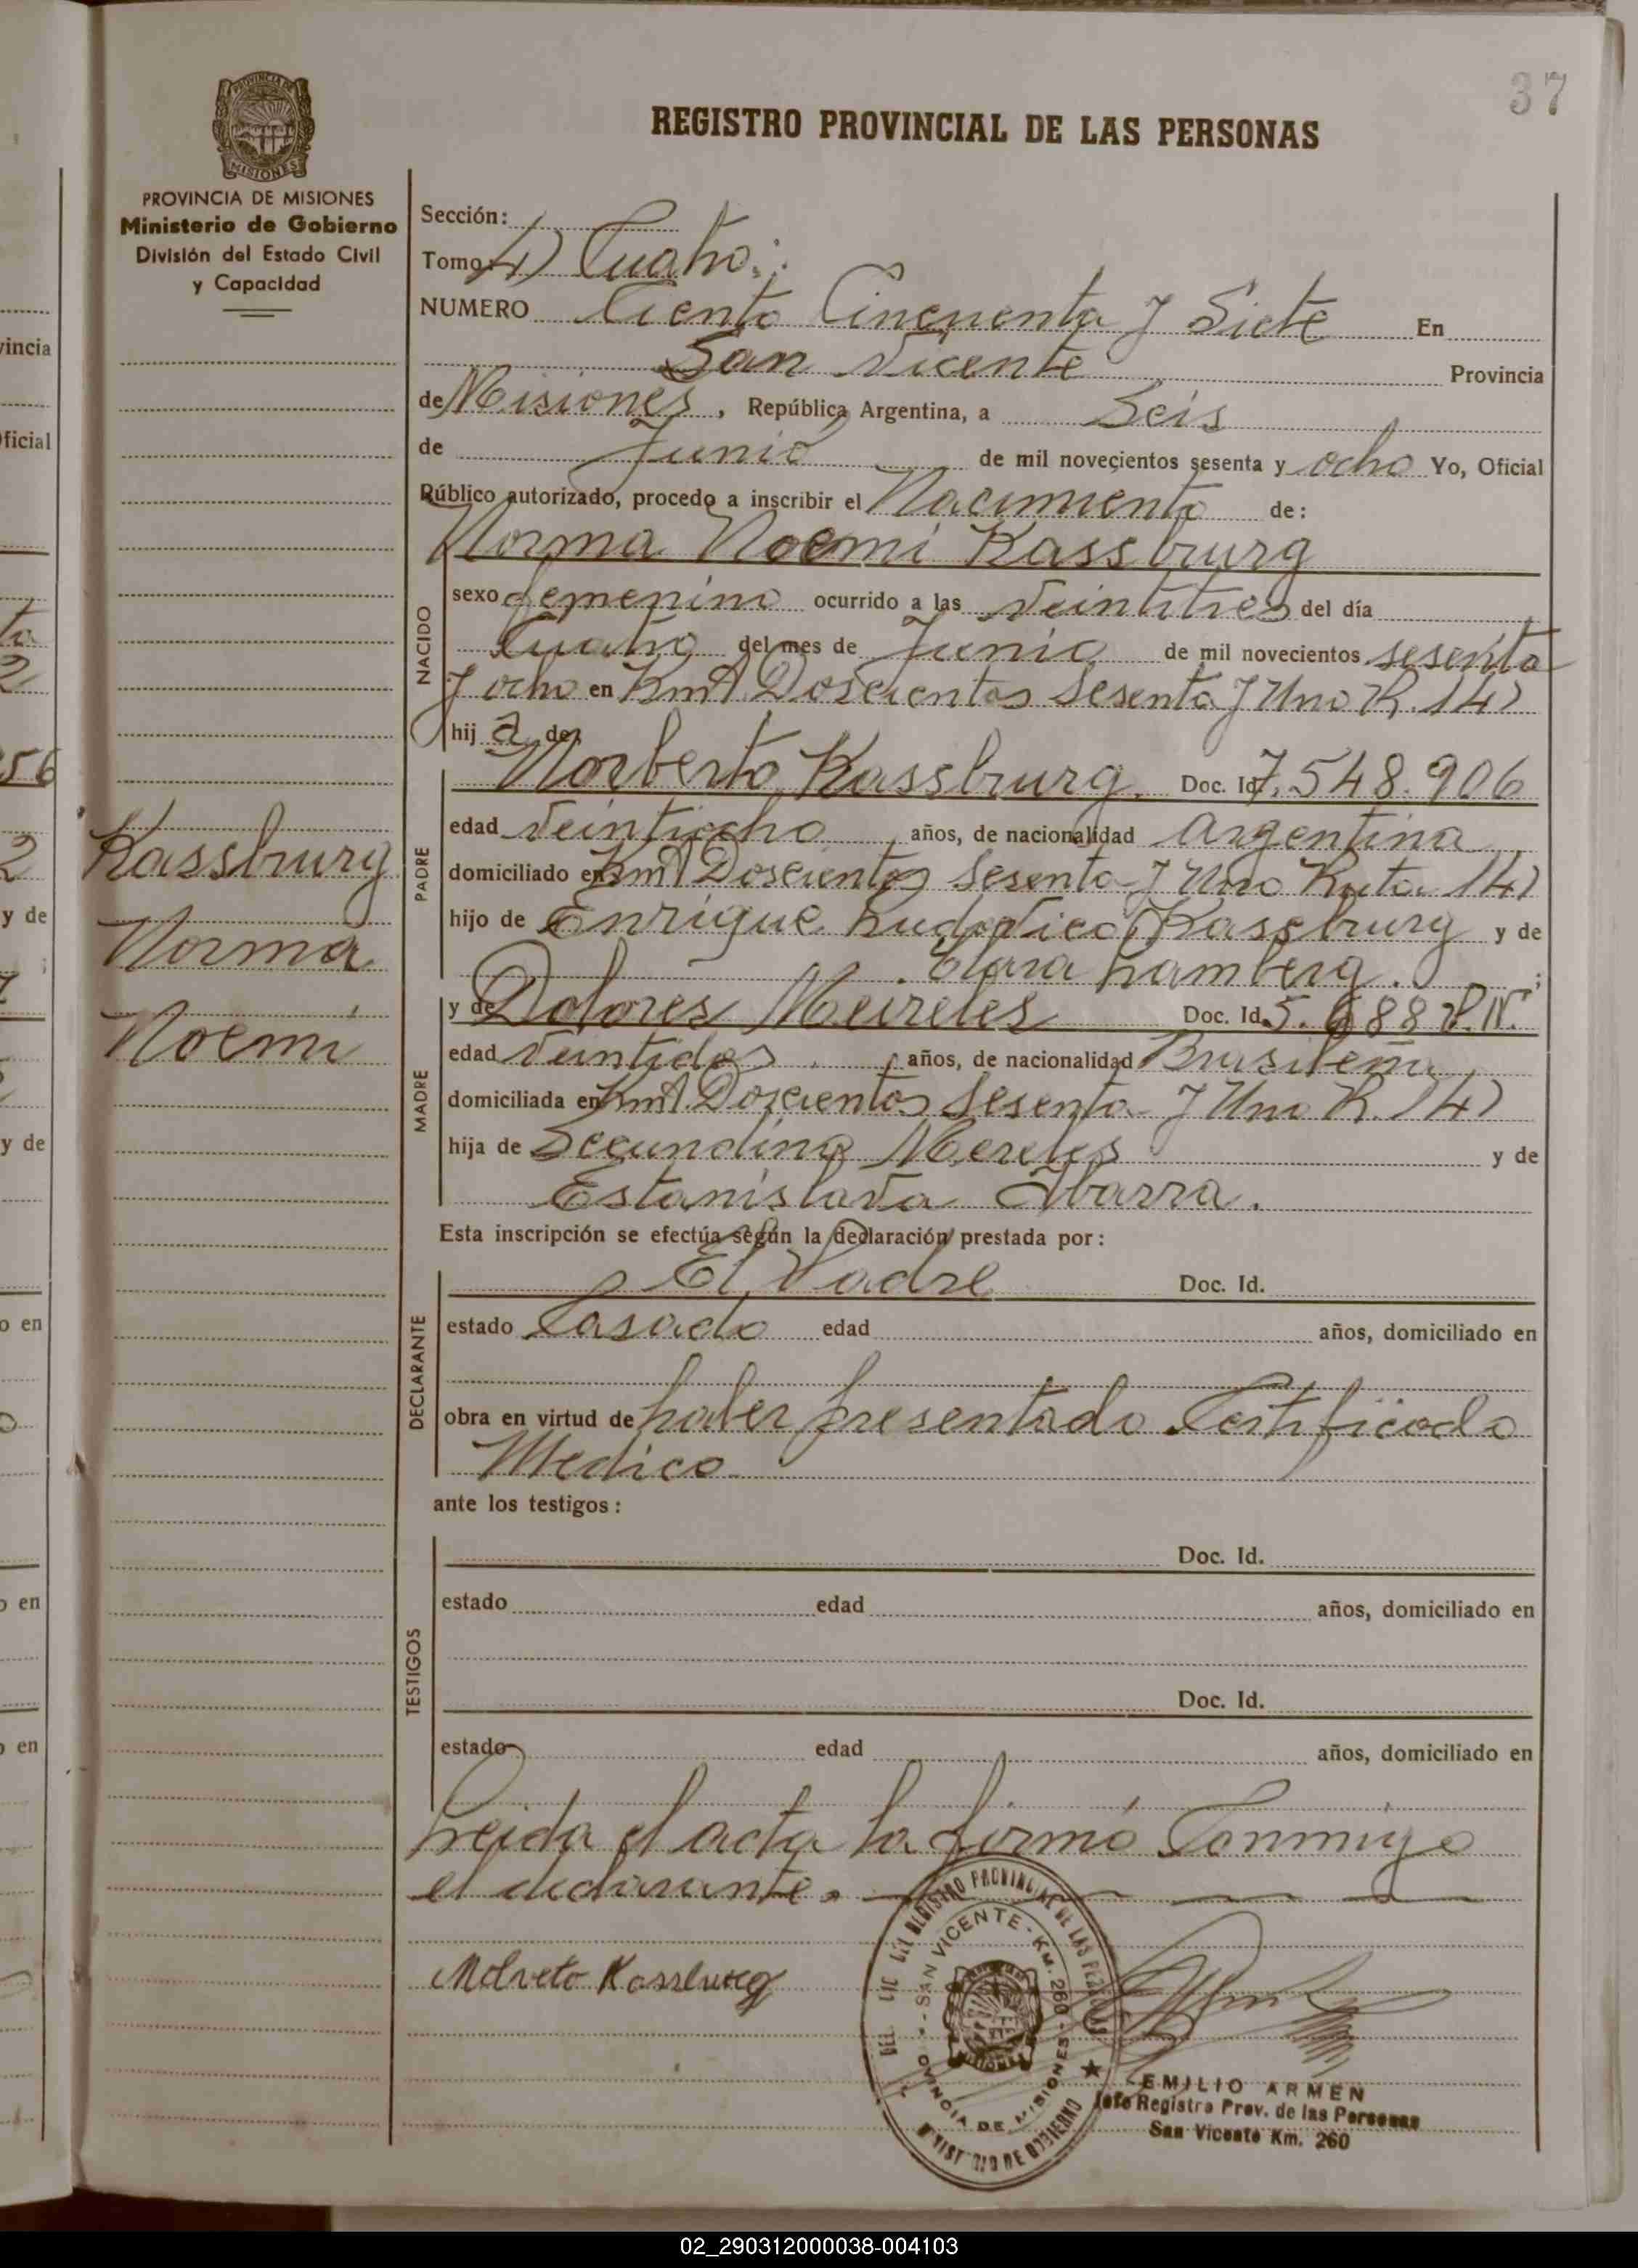 37
REGISTRO PROVINCIAL DE LAS PERSONAS
PROVINCIA DE
MISIONES
PROVINCIA DE MISIONES
Ministerio de Gobierno
División del Estado Civil
y Capacidad
Sección:
Tomo: 4) Cuatro.:
NUMERO Ciento Cincuenta y Siete En
San Vicente Provincia
de Misiones, República Argentina, a Seis
de Junio de mil novecientos sesenta y ocho Yo, Oficial
Público autorizado, procedo a inscribir el Nacimiento de:
Norma Noemi Kassburg
NACIDO
sexo femenino ocurrido a las veintitres del día
Cuatro del mes de Junio de mil novecientos sesenta
y ocho en Doscientos Sesenta y Uno R. 14)
hij a de:
PADRE
Norberto Kassburg. Doc. Id 7.548.906
edad veintiocho años, de nacionalidad Argentina
domiciliado en Doscientos Sesenta y Uno Ruta 14)
hijo de Enrique Ludovico Kassburg y de
Clara Lamberg.
Kassburg
Norma
Noemi
MADRE
y de Dolores Meireles Doc. Id. 5.688
edad veintidos años, de nacionalidad Brasileña
domiciliada en Doscientos Sesenta y Uno R. 14)
hija de Secundino Mereles y de
Estanislava Ibarra.
Esta inscripción se efectúa según la declaración prestada por:
DECLARANTE
El Padre Doc. Id.
estado Casado edad años, domiciliado en
obra en virtud de haber presentado Certificado
Medico
ante los testigos:
TESTIGOS
Doc. Id.
estado edad años, domiciliado en
Doc. Id.
estado edad años, domiciliado en
Leida el acta la firmó Conmigo
el declarante.
Kassburg
REGISTRO PROVINCIAL DE LAS PERSONAS
SAN VICENTE - KM. 260 -
MISIONES
PROVINCIA DE MISIONES
MINISTERIO DE GOBIERNO
EMILIO ARMEN
Jefe Registro Prov. de las Personas
San Vicente Km. 260
vincia
Oficial
56
2
y de
y de
o en
o en
o en
02_290312000038-004103